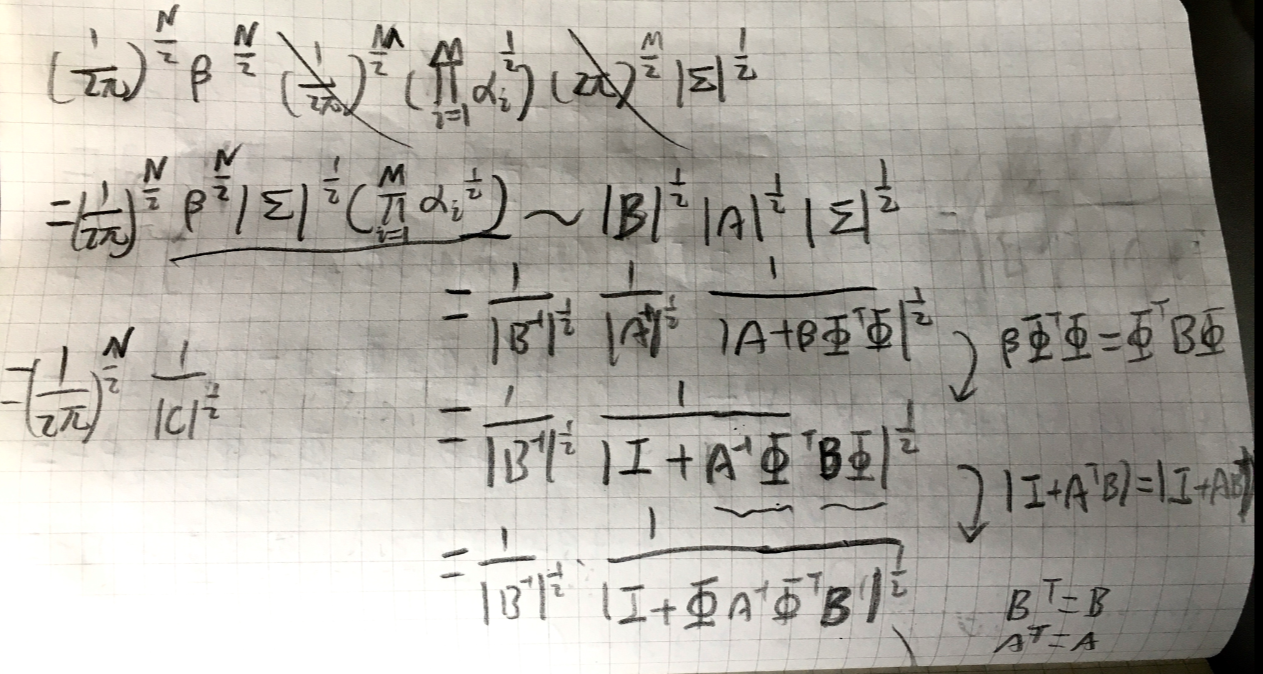 (1/2π)^{N/2} β^{N/2} (1/2π)^{M/2} (∏_{i=1}^{M} α_i^{1/2}) (2π)^{M/2} |Σ|^{1/2}
= (1/2π)^{N/2} β^{N/2} |Σ|^{1/2} (∏_{i=1}^{M} α_i^{1/2}) ~ |B|^{1/2} |A|^{1/2} |Σ|^{1/2}
= 1/|B^{-1}|^{1/2} 1/|A^{-1}|^{1/2} 1/|A+βΦ^TΦ|^{1/2} βΦ^TΦ = Φ^TBΦ
= (1/2π)^{N/2} 1/|C|^{1/2}
= 1/|B^{-1}|^{1/2} 1/|I + A^{-1}Φ^TBΦ|^{1/2} |I+A^TB| = |I+AB^T|
= 1/|B^{-1}|^{1/2} · 1/|I+ΦA^{-1}Φ^TB|^{1/2}
B^T=B
A^T=A